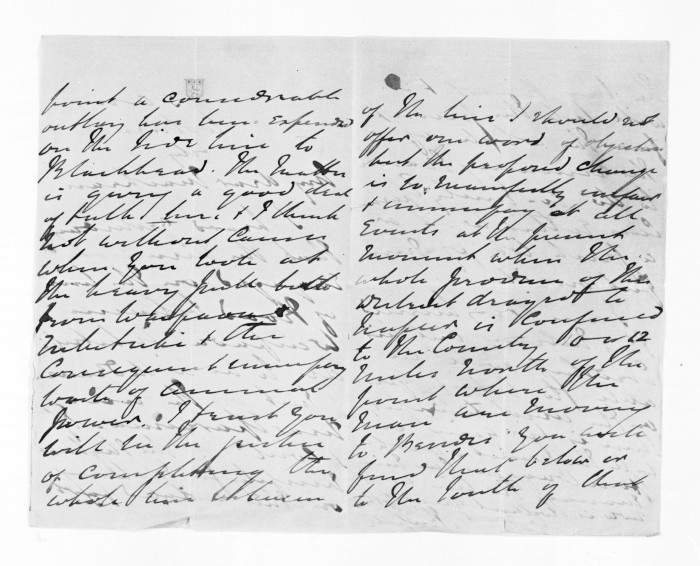 point a considerable
outlay has been expended
on the side line to
Blackhead. The matter
is giving a good deal
of talk here & I think
not without cause
when you look at
the heavy pull both
from
& the
consequent unnecessary
waste of animal
power. I trust you
will see the
of completing the
whole line between
of the line I should not
offer one word of objection
but the proposed change
is so manifestly unfair
& unnecessary at all
events at the present
moment when the
whole produce of the
District dragged to
Napier is confined
to the Country 8 or 12
miles North of the
point where the
men are moving
to. You will
find that below or
to the South of that